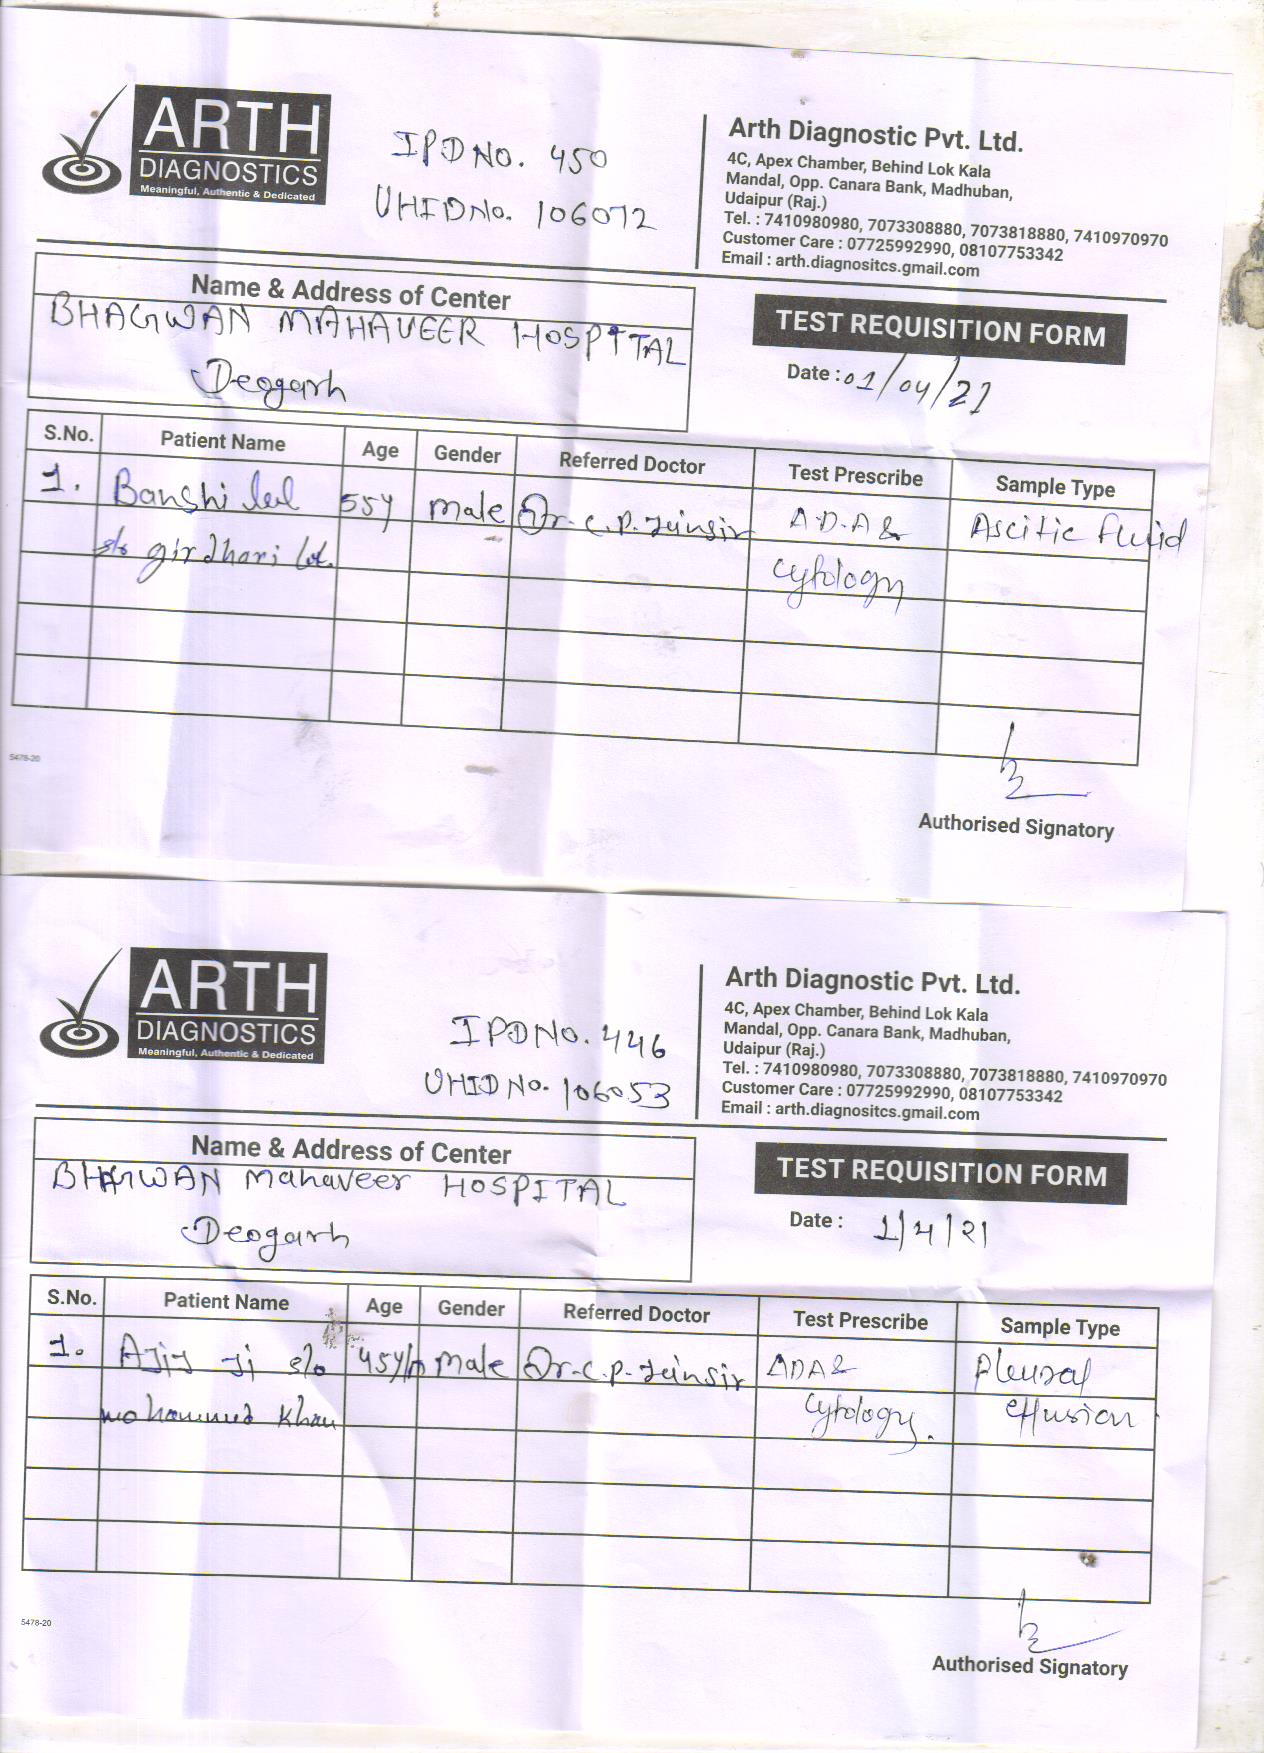 ARTH
DIAGNOSTICS
Meaningful, Authentic & Dedicated
IPD NO. 450
UHID No. 106072
Arth Diagnostic Pvt. Ltd.
4C, Apex Chamber, Behind Lok Kala
Mandal, Opp. Canara Bank, Madhuban,
Udaipur (Raj.)
Tel. : 7410980980, 7073308880, 7073818880, 7410970970
Customer Care : 07725992990, 08107753342
Email : arth.diagnositcs.gmail.com
Name & Address of Center
BHAGWAN MAHAVEER HOSPITAL
Deogarh
TEST REQUISITION FORM
Date : 01/04/21
S.No. Patient Name Age Gender Referred Doctor Test Prescribe Sample Type
1. Banshi lal 55y Male Dr. C.P. Jain sir A.D.A & Ascitic fluid
s/o girdhari lal. cytology
5478-20
Authorised Signatory
ARTH
DIAGNOSTICS
Meaningful, Authentic & Dedicated
IPD No. 446
UHID No. 106053
Arth Diagnostic Pvt. Ltd.
4C, Apex Chamber, Behind Lok Kala
Mandal, Opp. Canara Bank, Madhuban,
Udaipur (Raj.)
Tel. : 7410980980, 7073308880, 7073818880, 7410970970
Customer Care : 07725992990, 08107753342
Email : arth.diagnositcs.gmail.com
Name & Address of Center
BHAGWAN Mahaveer HOSPITAL
Deogarh
TEST REQUISITION FORM
Date : 1/4/21
S.No. Patient Name Age Gender Referred Doctor Test Prescribe Sample Type
1. ji s/o 45y/m Male Dr. C.P. Jain sir ADA & Pleural
mohammed Khan cytology. effusion
5478-20
Authorised Signatory